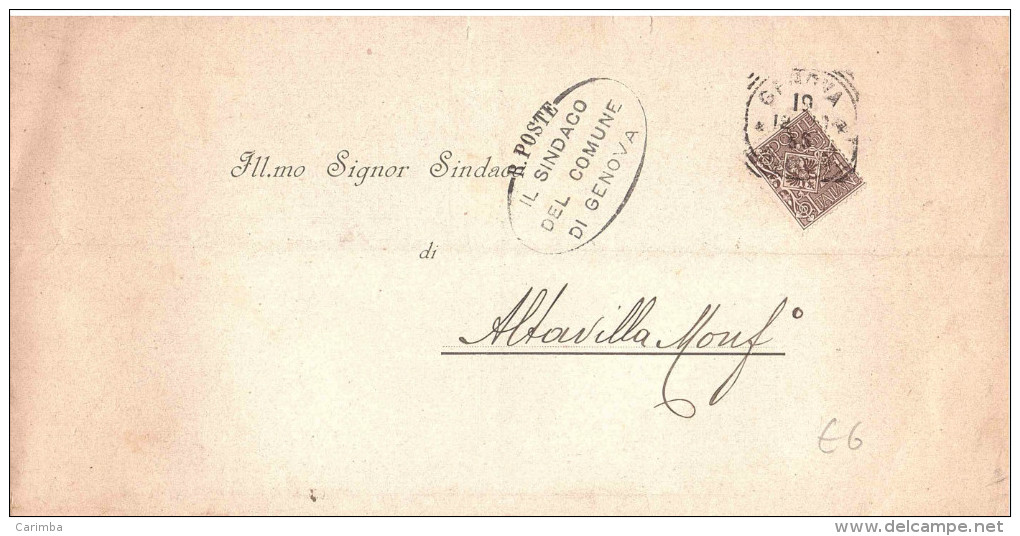 GENOVA
19
R. POSTE
IL SINDACO
DEL COMUNE
DI GENOVA
Ill.mo Signor Sindaco
di
Altavilla Monf.o
€6
Carimba
www.delcampe.net